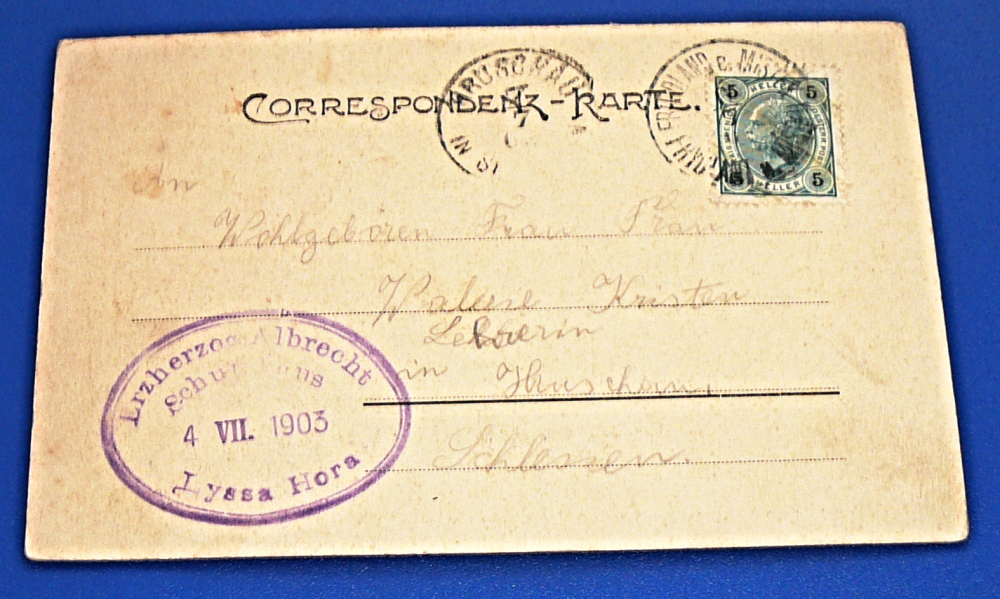 CORRESPONDENZ-KARTE.
HRUSCHAU
FRIEDLAND
5 HELLER 5
5 HELLER 5
An
Wohlgeboren Frau Frau
Valerie Kristen
Lehrerin
in Hruschau,
Schlesien.
Erzherzog Albrecht
Schutzhaus
4 VII. 1903
Lyssa Hora